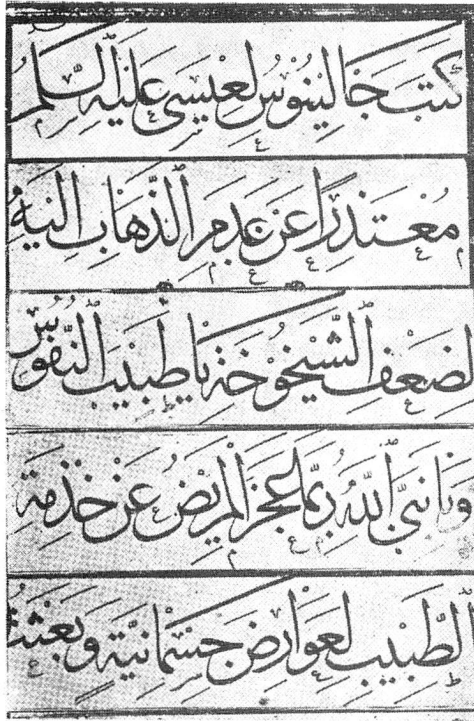 كَتَبَ جَالِينُوسُ لِعِيسَى عَلَيْهِ السَّلَامُ
مُعْتَذِرًا عَنْ عَدَمِ الذَّهَابِ اِلَيْهِ
لِضَعْفِ الشَّيْخُوخَةِ يَا طَبِيبَ النُّفُوسِ
وَيَا نَبِيَّ اللّٰهِ رُبَّمَا عَجَزَ الْمَرِيضُ عَنْ خِدْمَةِ
الطَّبِيبِ لِعَوَارِضَ جِسْمَانِيَّةٍ وَبَعَثْتُ